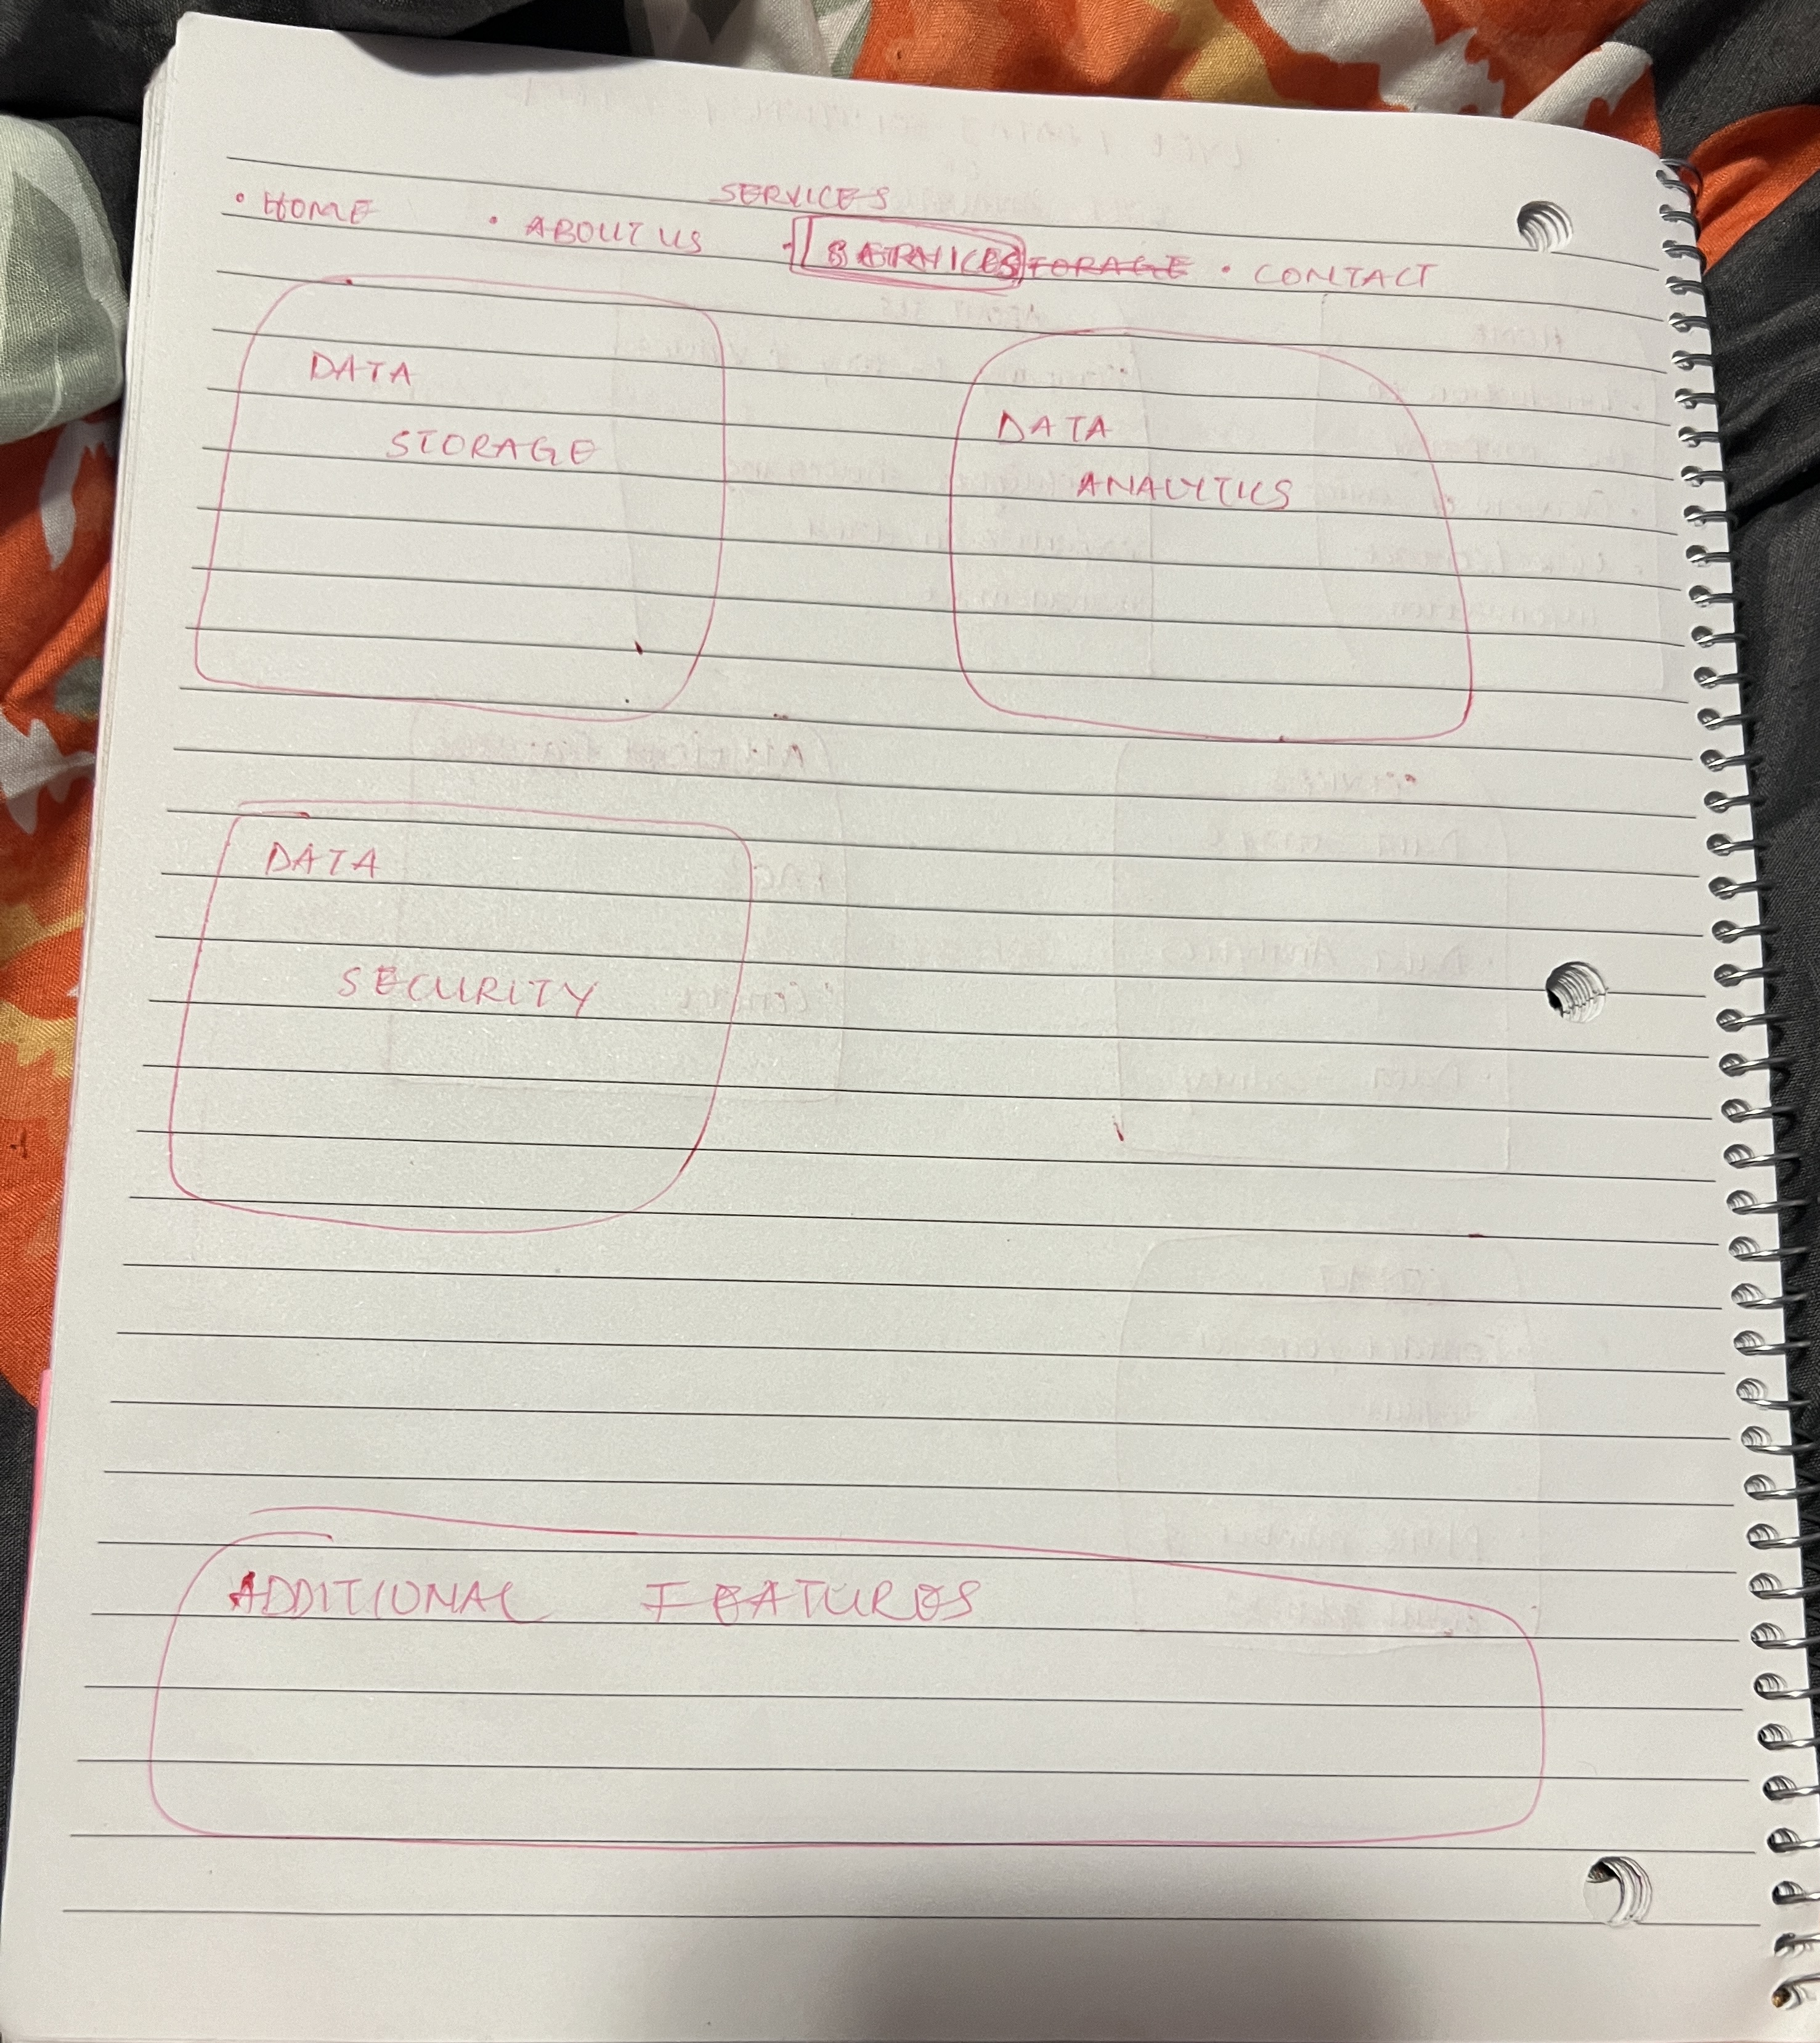 SERVICES
• HOME • ABOUT US • SERVICES • CONTACT
DATA
STORAGE
DATA
ANALYTICS
DATA
SECURITY
ADDITIONAL FEATURES